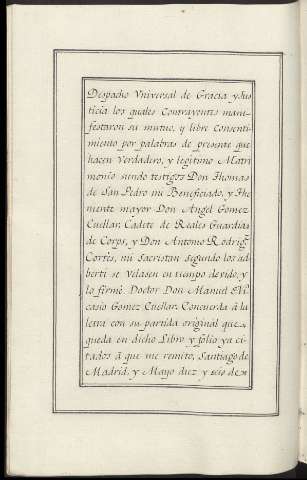 Despacho Vniversal de Gracia y Jus
ticia los quales Contrayentes mani-
festaron su mutuo, y libre Consenti-
miento por palabras de presente que
hacen Verdadero, y legitimo Matri
monio siendo testigos Don Thomas
de San Pedro mi Beneficiado, y The
niente mayor Don Angel Gomez
Cuellar, Cadete de Reales Guardias
de Corps, y Don Antonio Rodrig.
Cortés, mi Sacristan segundo los ad
berti se Velasen en tiempo devido, y
lo firmé. Doctor Don Manuel Ni
casio Gomez Cuellar. Concuerda á la
letra con su partida original que
queda en dicho Libro y folio ya ci
tados á que me remito, Santiago de
Madrid, y Mayo diez y seis de